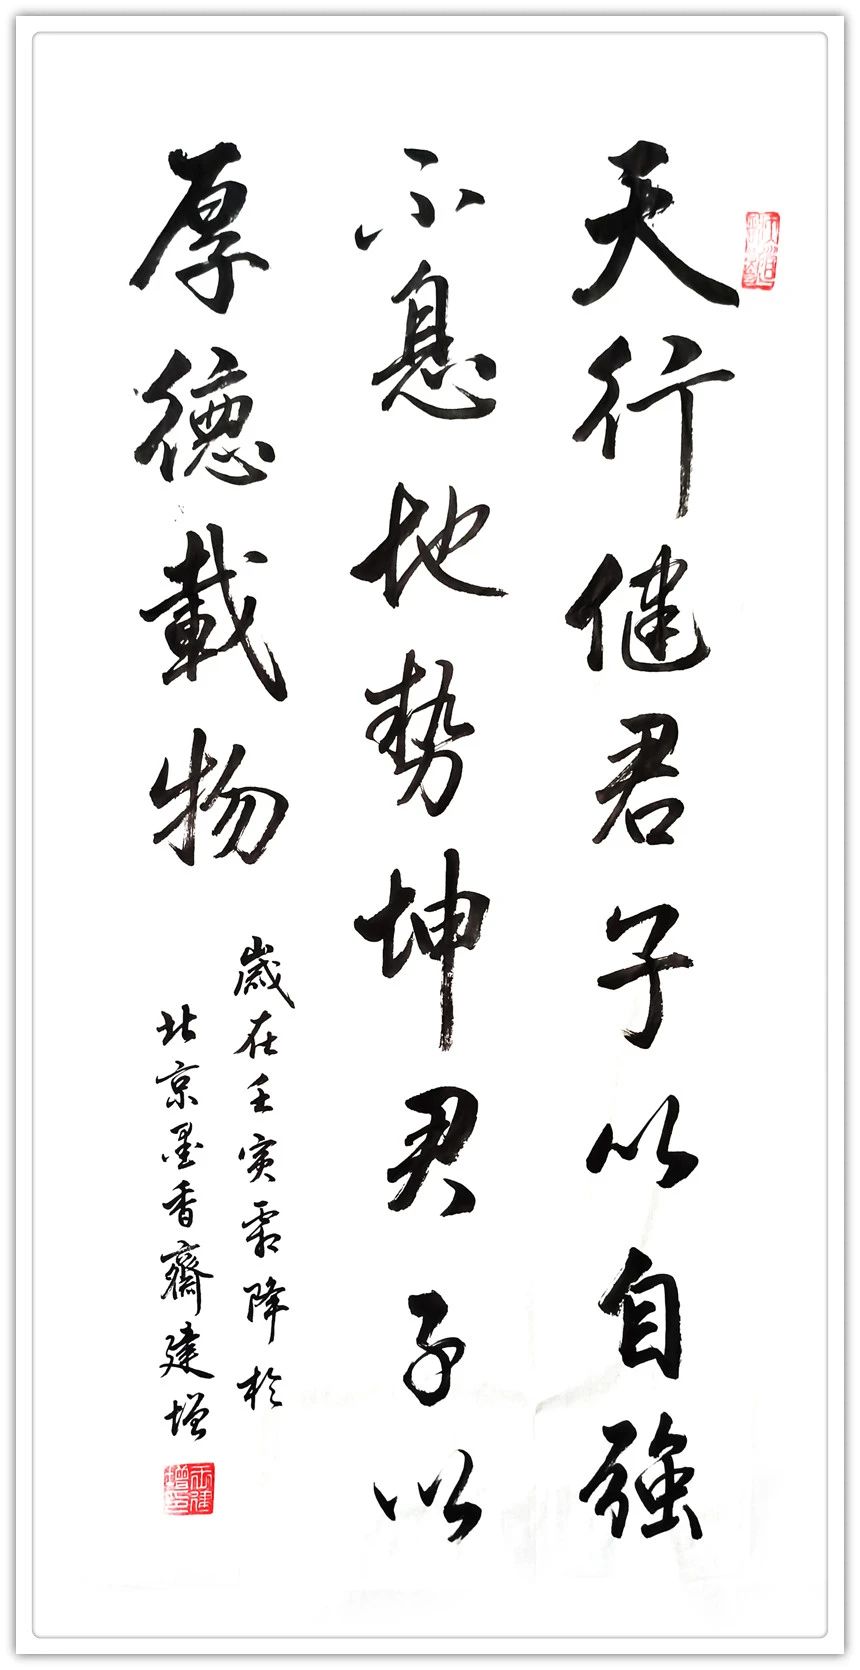 天行健君子以自強
不息地势坤君子以
厚德載物
歲在壬寅霜降於
北京墨香齋建增